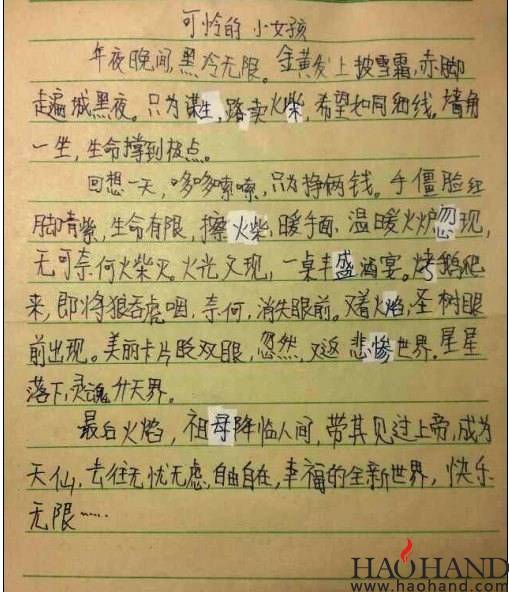 可怜的小女孩
年夜晚间,黑冷无限。金黄发上披雪霜,赤脚
走遍城黑夜。只为谋生,路卖火柴,希望如同细线。墙角
一坐,生命撑到极点。
回想一天,哆哆嗦嗦,只为挣俩钱。手僵脸红
脚青紫,生命有限,擦火柴,暖手面,温暖火炉忽现,
无可奈何火柴灭。火光又现,一桌丰盛酒宴。烤鹅爬
来,即将狼吞虎咽,奈何,消失眼前。又着火焰,圣树眼
前出现。美丽卡片眨双眼,忽然,又返悲惨世界。星星
落下,灵魂升天界。
最后火焰,祖母降临人间,带其见过上帝,成为
天仙,去往无忧无虑,自由自在,幸福的全新世界,快乐
无限……
HAOHAND
www.haohand.com